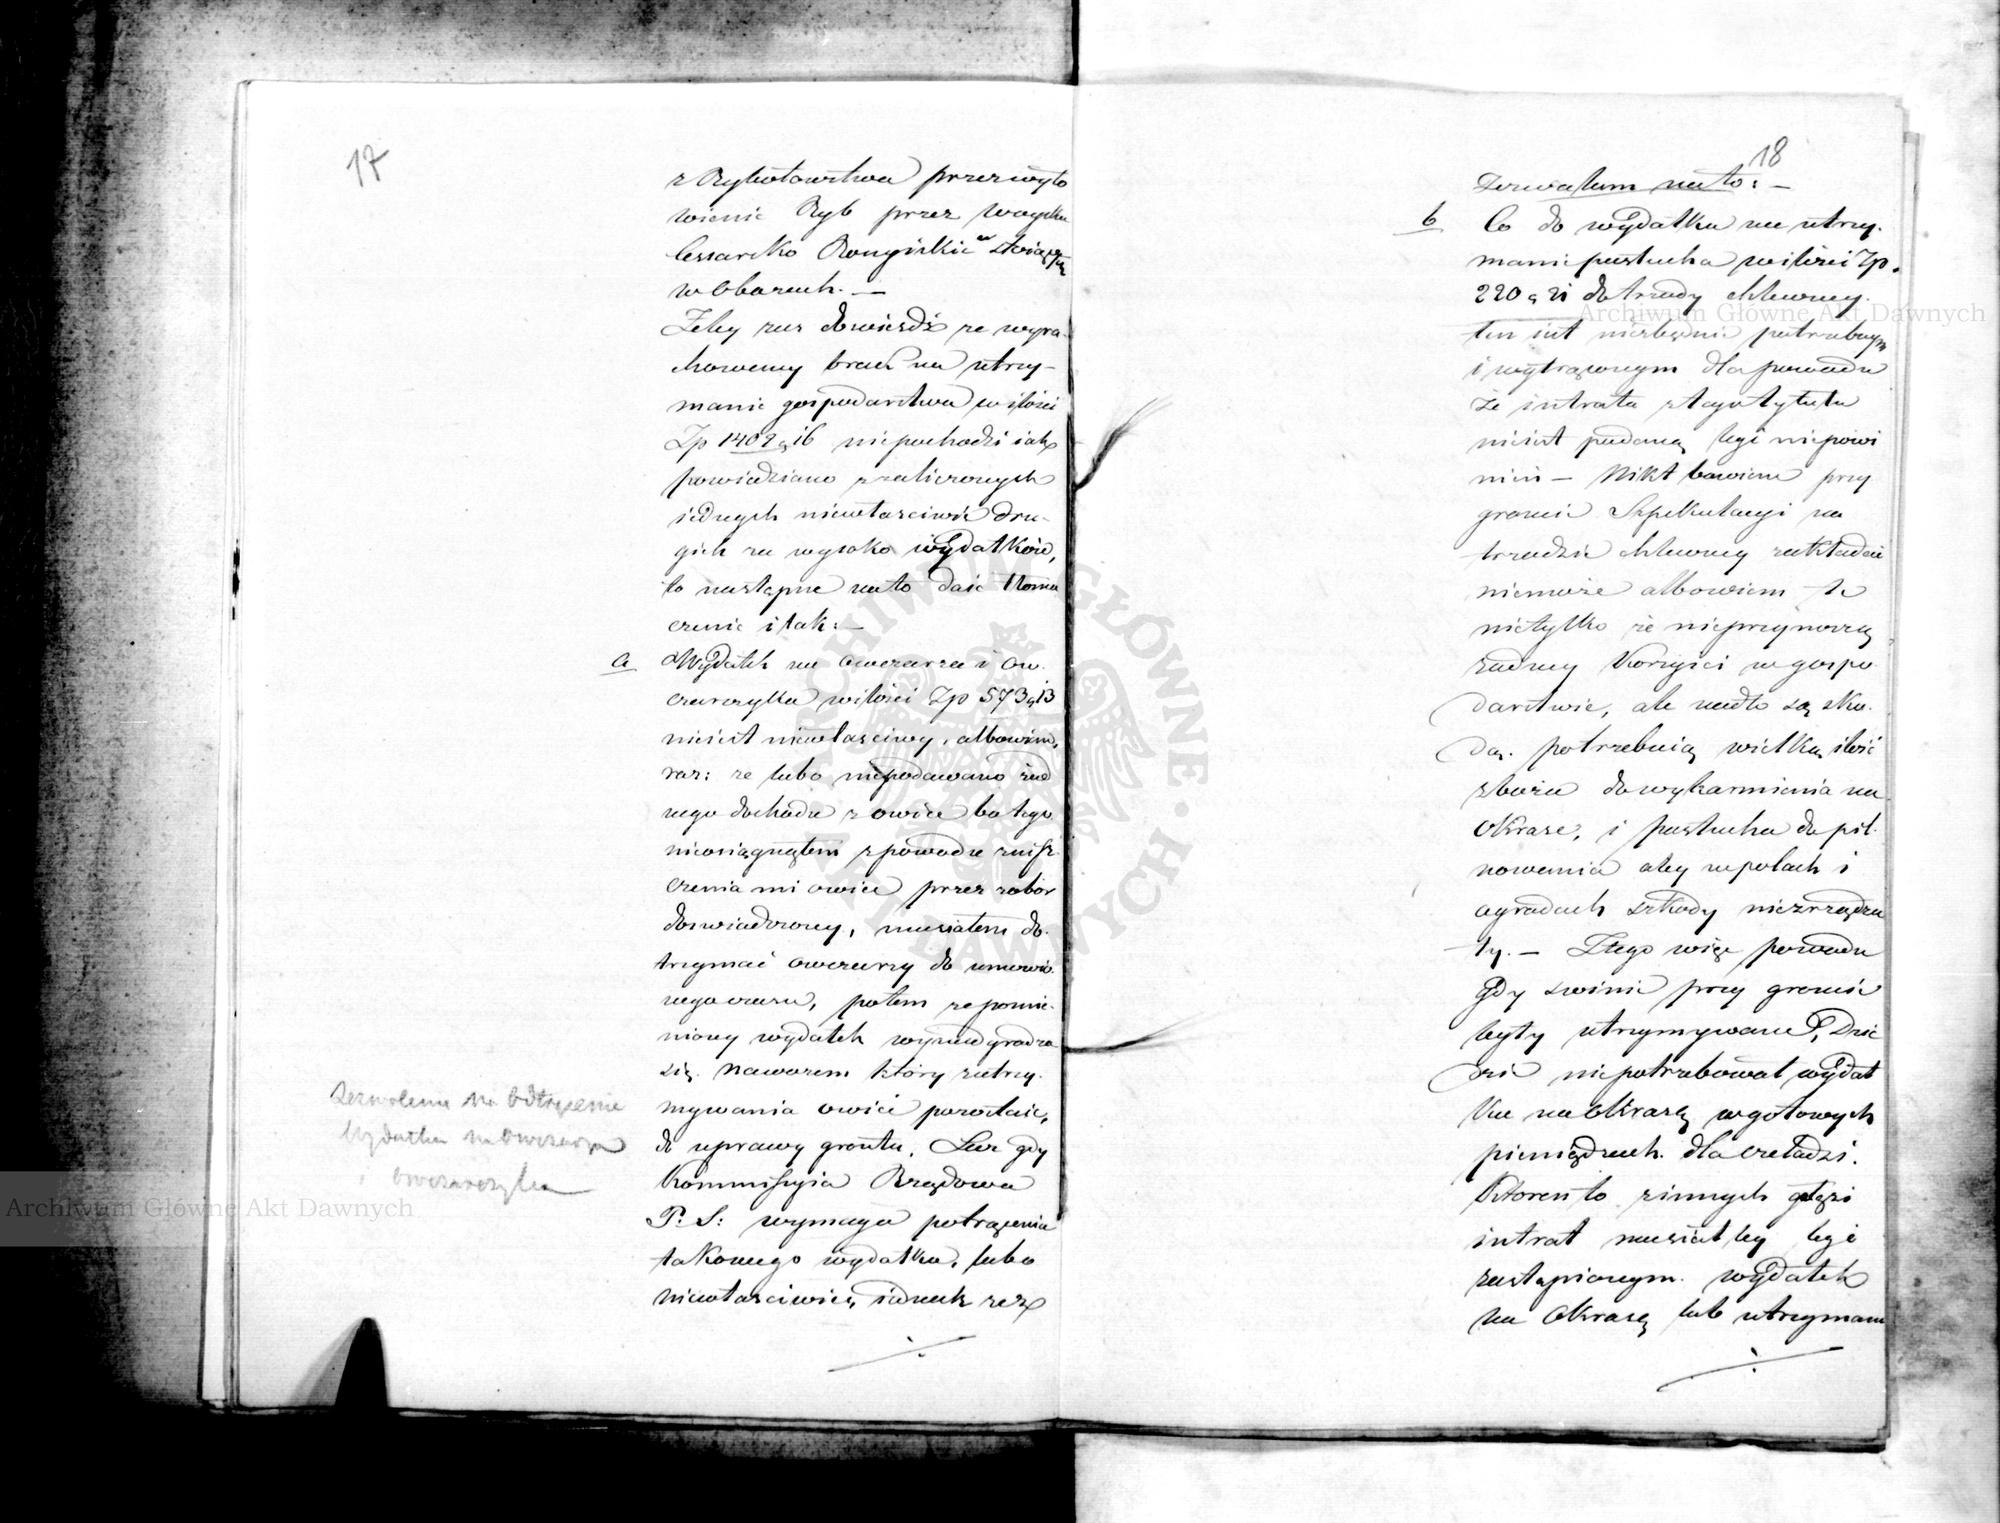 17
z Rybołowstwa przez wyło
wienie Ryb przez woyska
Cesarsko Rossyiskie stoiące
w Obozach. —
Żeby zas dowieśdź ze wyra-
chowany brak na utrzy-
manie gospodarstwa w ilości
Zp 1402 g 16 niepochodzi iak
powiedziano z zaliczonych
iednych niewłasciwie dru-
gich za wysoko wydatków,
to następne na to daie tłoma
czenie i tak: —
a Wydatek na owczarza i ow-
czarczyka w ilości Zp 573 g 13
nieiest niewłasciwy, albowiem,
raz: ze lubo niepodawano zad
nego dochodu z owiec bo tego
nieosiągnąłem z powodu znisz-
czenia mi owiec przez zabor
doswiadczony, musiałem do-
trzymać owczarzy do umowio-
nego czasu, potem ze pomie-
niony wydatek wynadgradza
się nawozem który z utrzy-
mywania owiec pozostaie,
do uprawy gruntu. Lecz gdy
Kommissyia Rządowa
P: S: wymaga potrącenia
takowego wydatku, lubo
niewłasciwie, iednak zez
Zezwolenie na odtrącenie
wydatku na owczarza
i owczarczyka
18
zezwalam na to: —
b Co do wydatku na utrzy-
manie pastucha w ilości Zp.
220 g 21 do trzody chlewney.
ten iest niezbędnie potrzebnym
i wytrąconym dla powodu
że intrata z tego tytułu
nieiest podaną tego niepowi
nien — Nikt bowiem przy
groncie Szpekulacyi na
trzodzie chlewney zakładać
niemoże albowiem te
nietylko że nieprzynoszą
żadney korzyści w gospo
darstwie, ale nadto są szko-
dą. potrzebuią wielką ilość
zboża do wykarmienia na
Okrase, i pastucha do pil-
nowania aby w polach i
ogrodach szkody niezrządza
ły. — Z tego więc powodu
Gdy swinie przy groncie
były utrzymywane, Dzie
dzic niepotrzebował wydat
ku na Okrasę w gotowych
pieniądzach dla czeladzi.
Któren to z innych gałęzi
intrat musiał by być
zastąpionym. wydatek
na Okrasę lub utrzymanie
Archiwum Główne Akt Dawnych
Archiwum Główne Akt Dawnych
ARCHIWUM GŁÓWNE AKT DAWNYCH